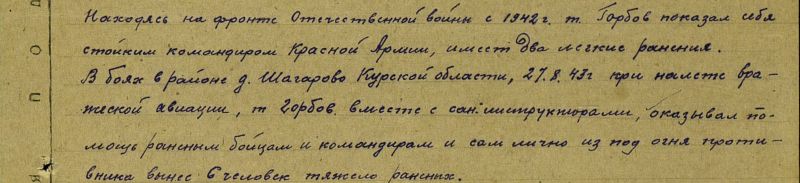 Находясь на фронте Отечественной войны с 1942г. т. Горбов показал себя
стойким командиром Красной Армии, имеет два легкие ранения.
В боях в районе д. Шагарово Курской области, 27.8.43г при налете вра-
жеской авиации, т Горбов вместе с сан.инструкторами, оказывал по-
мощь раненым бойцам и командирам и сам лично из под огня проти-
вника вынес 6 человек тяжело раненых.